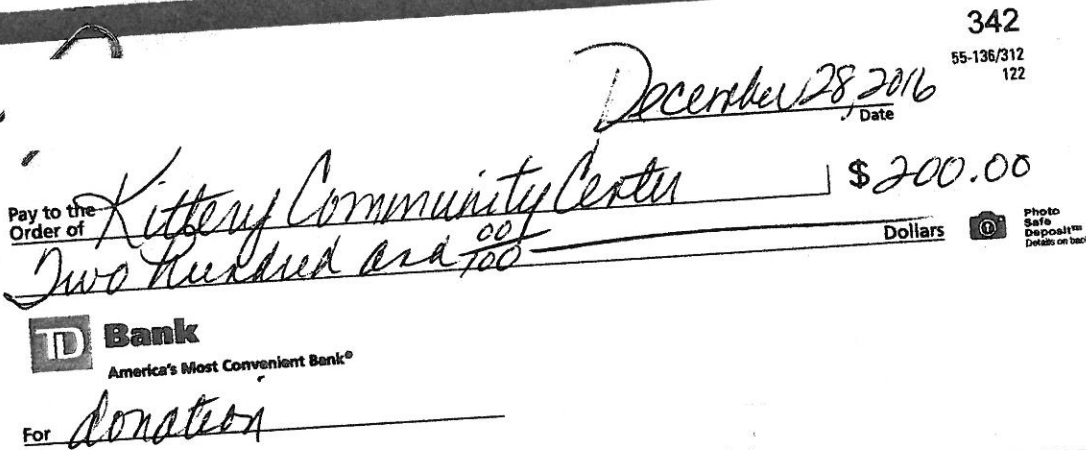 342
55-136/312
122
December 28, 2016
Date
Pay to the Order of Kittery Community Center $200.00
Two Hundred and 00/100 Dollars
Photo Safe Deposit™ Details on back
TD Bank
America's Most Convenient Bank®
For donation